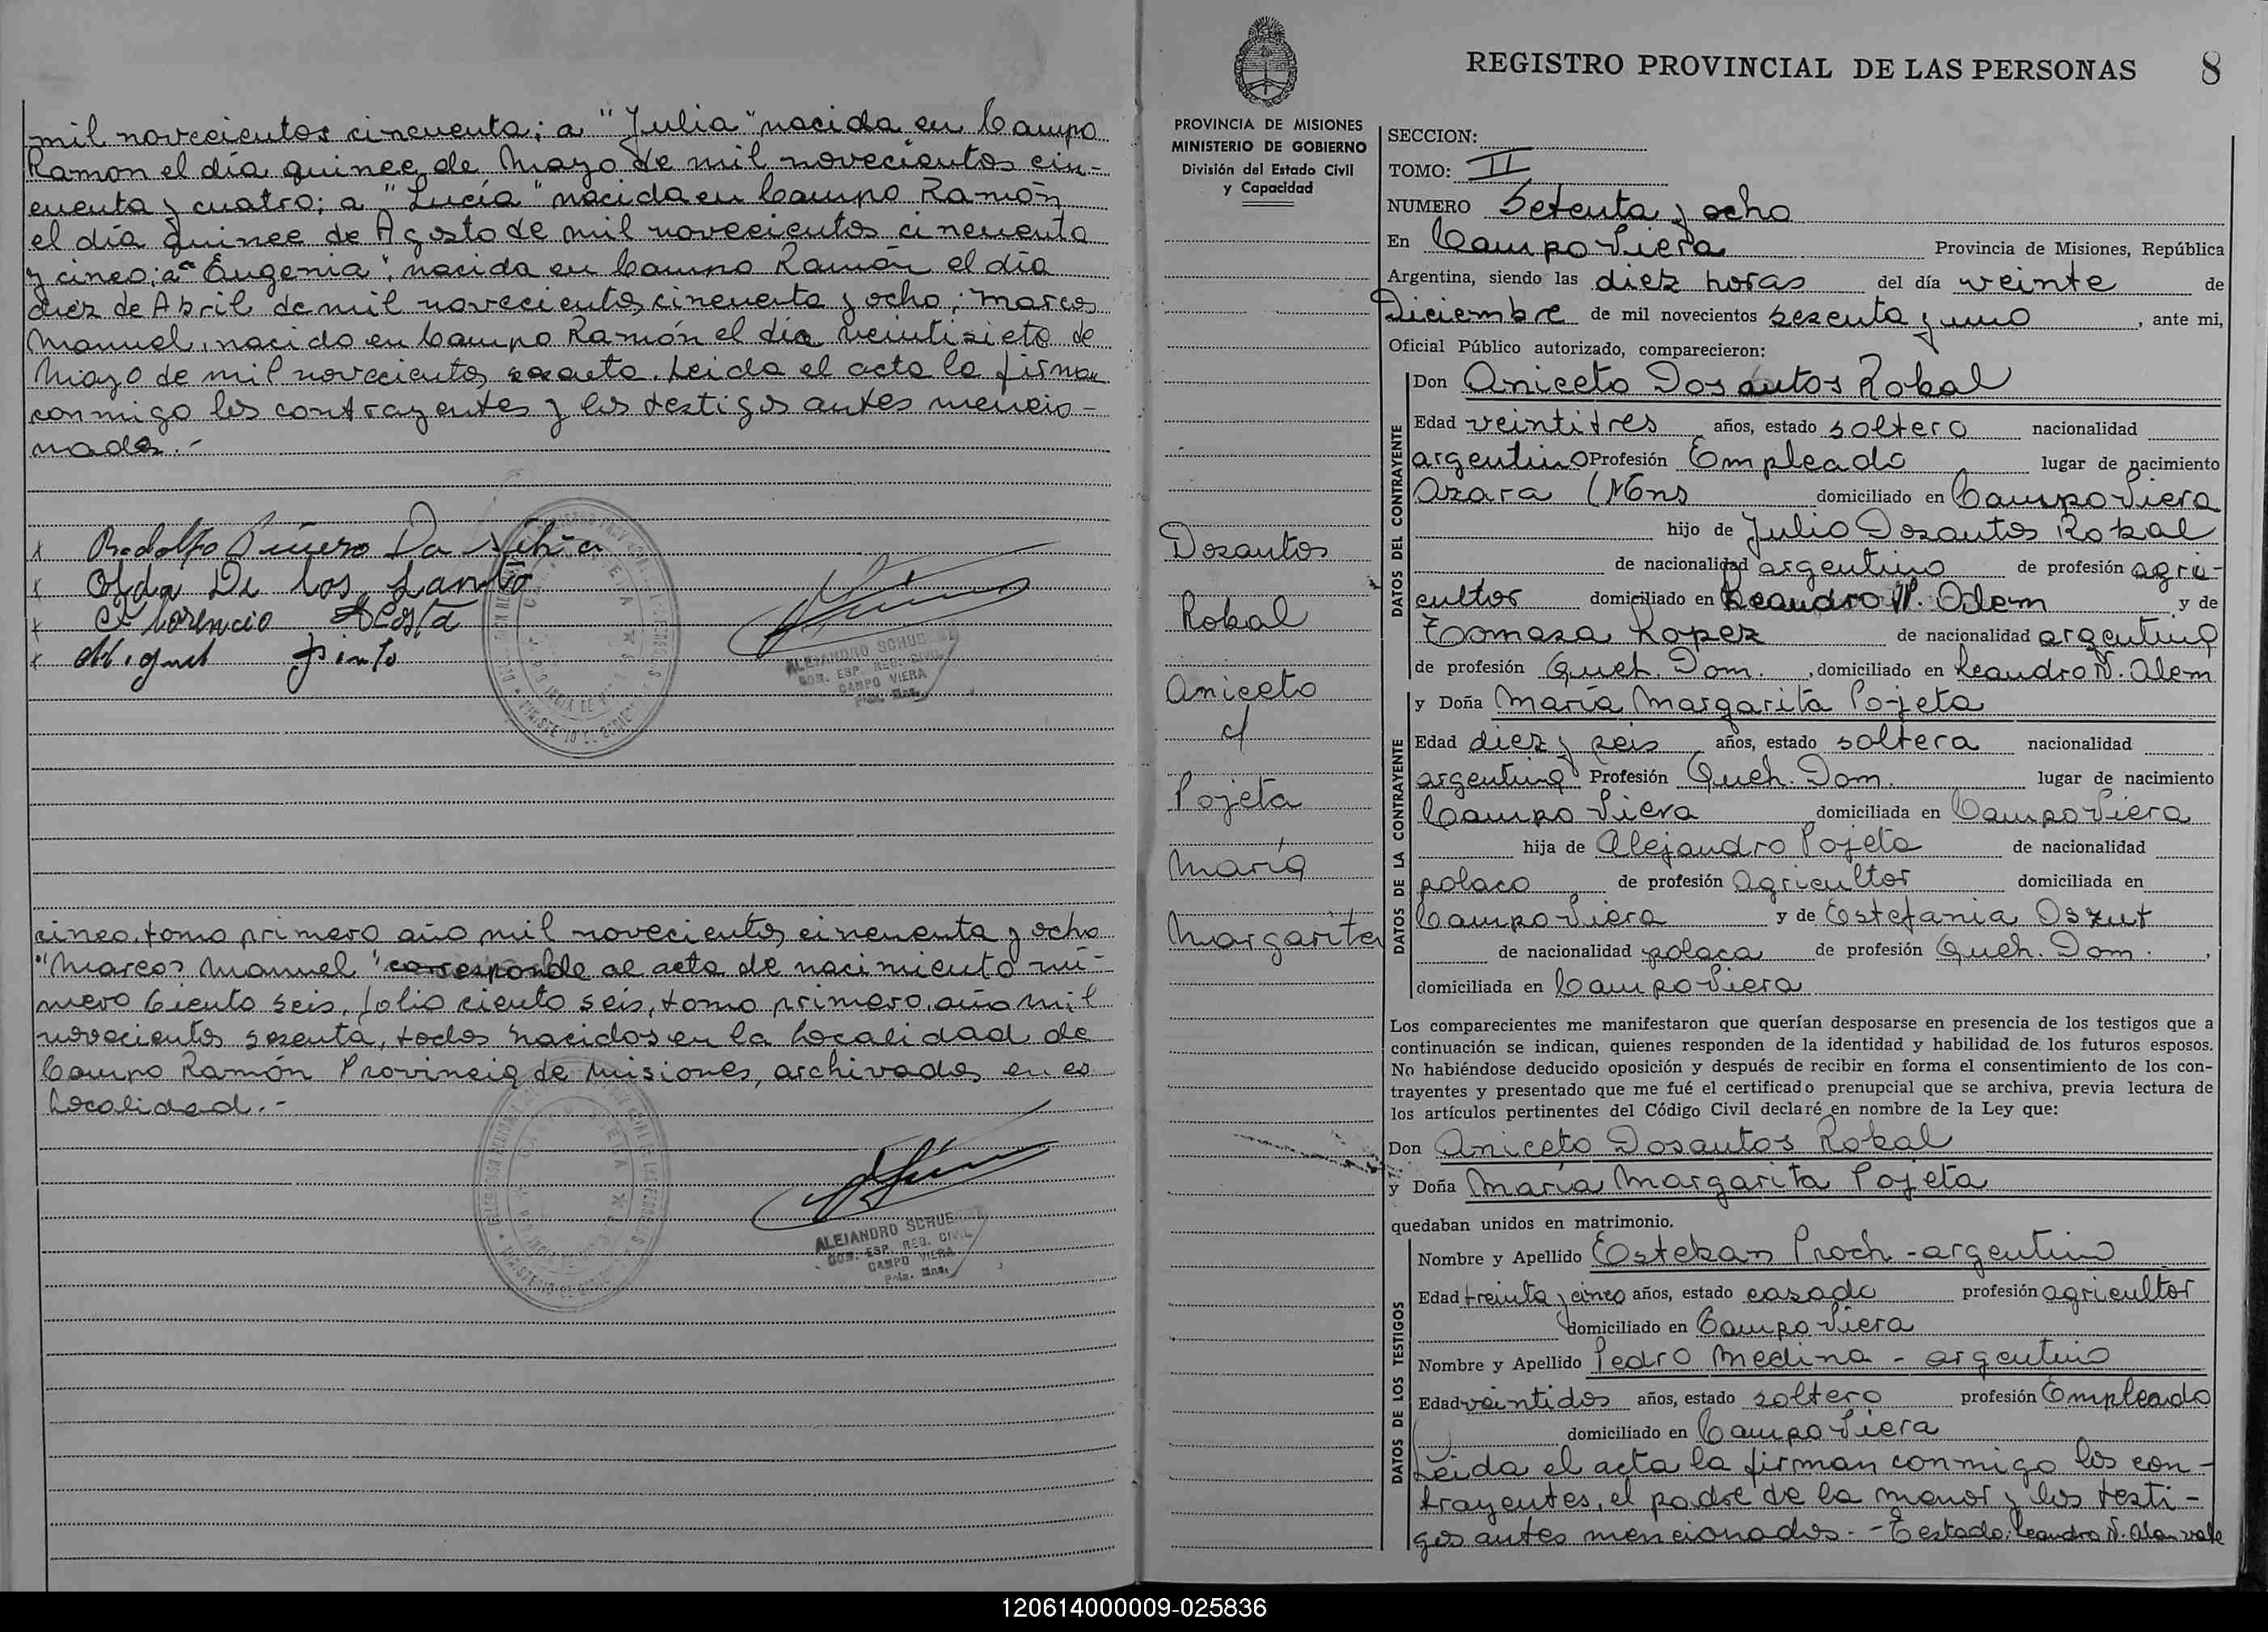 mil novecientos cincuenta; a "Julia" nacida en Campo
Ramon el día quince de Mayo de mil novecientos cin-
cuenta y cuatro; a "Lucía" nacida en Campo Ramón
el día quince de Agosto de mil novecientos cincuenta
y cinco; a "Eugenia", nacida en Campo Ramón el día
diez de Abril de mil novecientos cincuenta y ocho; Marcos
Manuel, nacido en Campo Ramón el día veintisiete de
Mayo de mil novecientos sesenta. Leida el acta la firman
conmigo los contrayentes y los testigos antes mencio-
nados.-
x Rodolfo Da
x Olda De los Santo
x Florencio Acosta
x Miguel Pinto
ALEJANDRO SCHUS
COM. ESP. REG. CIVIL
CAMPO VIERA
Pcia. Mns.
cinco, tomo primero año mil novecientos cincuenta y ocho
"Marcos Manuel" corresponde al acta de nacimiento nú-
mero Ciento seis, folio ciento seis, tomo primero, año mil
novecientos sesenta, todos nacidos en la localidad de
Campo Ramón Provincia de Misiones, archivados en es
localidad.-
ALEJANDRO SCHUS
COM. ESP. REG. CIVIL
CAMPO VIERA
Pcia. Mns.
REGISTRO PROVINCIAL DE LAS PERSONAS 8
PROVINCIA DE MISIONES
MINISTERIO DE GOBIERNO
División del Estado Civil
y Capacidad
Dosantos
Robal
Aniceto
c/
Pojeta
María
Margarita
SECCION:
TOMO: II
NUMERO Setenta y ocho
En Campo Viera Provincia de Misiones, República
Argentina, siendo las diez horas del día veinte de
Diciembre de mil novecientos sesenta y uno, ante mi,
Oficial Público autorizado, comparecieron:
DATOS DEL CONTRAYENTE
Don Aniceto Dosantos Robal
Edad veintitres años, estado soltero nacionalidad
argentino Profesión Empleado lugar de nacimiento
Azara (Mns domiciliado en Campo Viera
hijo de Julio Dosantos Robal
de nacionalidad argentino de profesión agri-
cultor domiciliado en Leandro N. Alem y de
Tomasa Lopez de nacionalidad argentina
de profesión Queh. Dom. , domiciliado en Leandro N. Alem
DATOS DE LA CONTRAYENTE
y Doña María Margarita Pojeta
Edad diez y seis años, estado soltera nacionalidad
argentina Profesión Queh. Dom. lugar de nacimiento
Campo Viera domiciliada en Campo Viera
hija de Alejandro Pojeta de nacionalidad
polaco de profesión Agricultor domiciliada en
Campo Viera y de Estefania Oszut
de nacionalidad polaca de profesión Queh. Dom. ,
domiciliada en Campo Viera
Los comparecientes me manifestaron que querían desposarse en presencia de los testigos que a
continuación se indican, quienes responden de la identidad y habilidad de los futuros esposos.
No habiéndose deducido oposición y después de recibir en forma el consentimiento de los con-
trayentes y presentado que me fué el certificado prenupcial que se archiva, previa lectura de
los artículos pertinentes del Código Civil declaré en nombre de la Ley que:
Don Aniceto Dosantos Robal
y Doña María Margarita Pojeta
quedaban unidos en matrimonio.
DATOS DE LOS TESTIGOS
Nombre y Apellido Esteban Proch - argentino
Edad treinta y cinco años, estado casado profesión agricultor
domiciliado en Campo Viera
Nombre y Apellido Pedro Medina - argentino
Edad veintidos años, estado soltero profesión Empleado
domiciliado en Campo Viera
Leida el acta la firman conmigo los con-
trayentes, el padre de la menor y los testi-
gos antes mencionados.- - Testado: Leandro N. Alem vale
120614000009-025836